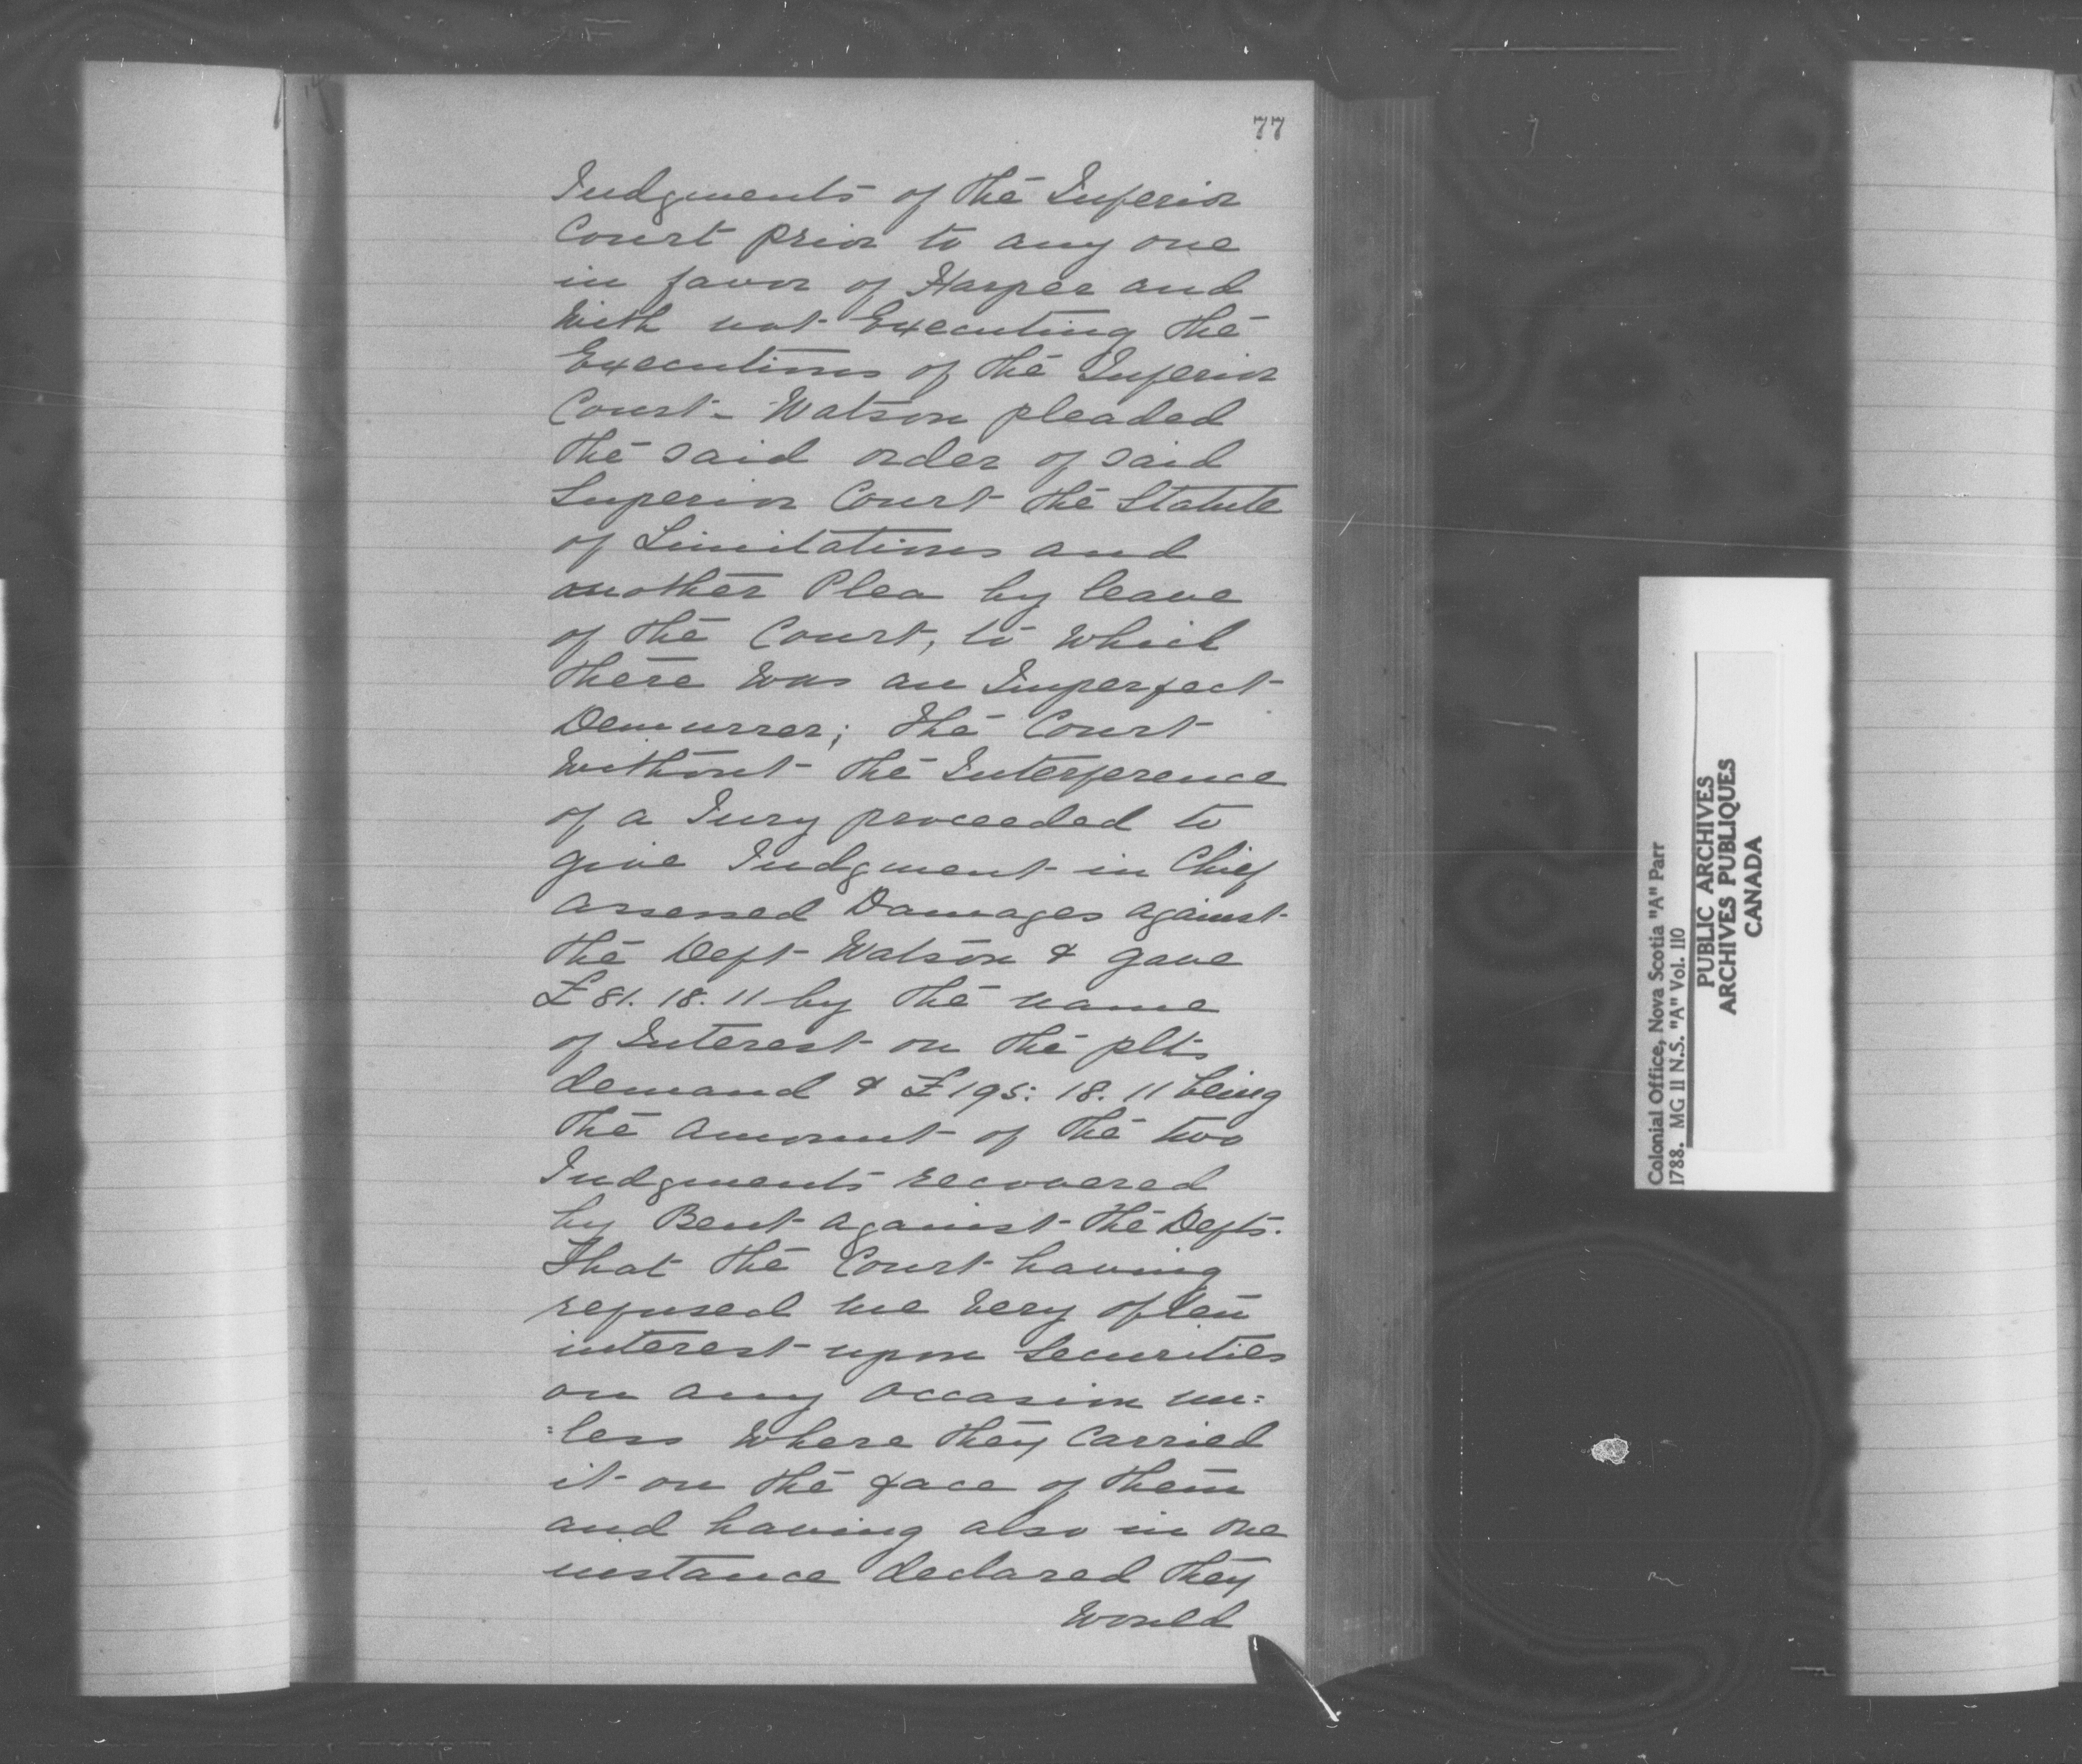 77
Judgments of the Inferior
Court prior to any one
in favor of Harper and
With not Executing the
Executions of the Inferior
Court - Watson pleaded
the said order of said
Superior Court the Statute
of Limitations and
another Plea by leave
of the Court, to which
there was an Imperfect
Demurrer; the Court
without the Interference
of a Jury proceeded to
give Judgment in Chief
assessed Damages against
the Deft Watson & gave
£81. 18. 11 by the name
of Interest on the plts
demand & £195: 18. 11 being
the amount of the two
Judgments recovered
by Bent against the Defts.
That the Court having
refused me very often
interest upon Securities
on any occasion un=
=less where they carried
it on the face of them
and having also in one
instance declared they
would
Colonial Office, Nova Scotia "A" Parr
1788. MG 11 N.S. "A" Vol. 110
PUBLIC ARCHIVES
ARCHIVES PUBLIQUES
CANADA